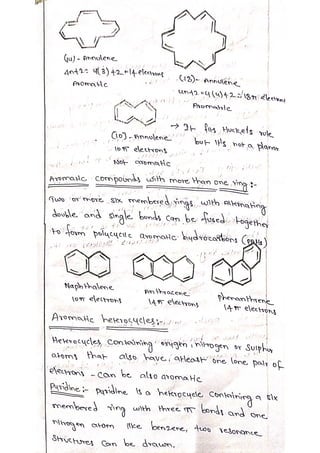 (14) - Annulene
4n+2 = 4(3)+2 = 14 electrons
Aromatic
(18) - Annulene
4n+2 = 4(4)+2 = 18π electrons
Aromatic
(10) - Annulene
10π electrons
Not aromatic
→ It has Huckels rule
but It's not a planar
Aromatic compounds with more than one ring :-
Two or more six membered rings with alternating
double and single bonds can be fused together
to form polycyclic aromatic hydrocarbons (PAHs)
Naphthalene
10π electrons
Anthracene
14π electrons
Phenanthrene
14π electrons
Aromatic heterocycles :-
Heterocycles containing oxygen, nitrogen or Sulphur
atoms that also have, atleast one lone pair of
electrons - can be also aromatic
Pyridine :- pyridine is a heterocycle containing a six
membered ring with three π bonds and one
nitrogen atom like benzene, two resonance
Structures can be drawn.